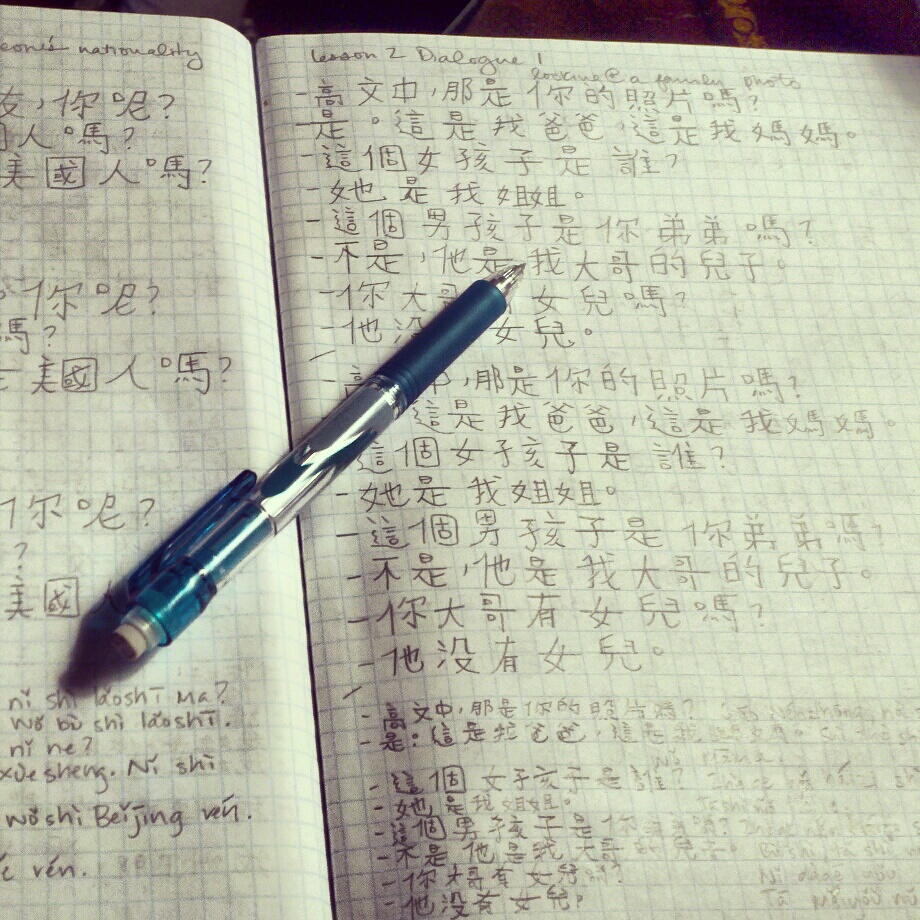 nationality
你呢?
人嗎?
美國人嗎?
你呢?
嗎?
美國人嗎?
你呢?
?
美國
nǐ shì lǎoshī ma?
wǒ bù shì lǎoshī.
nǐ ne?
xúesheng. Nǐ shì
wǒ shì Běijīng rén.
rén.
Lesson 2 Dialogue 1
looking @ a family photo
-高文中,那是你的照片嗎?
是。這是我爸爸,這是我媽媽。
-這個女孩子是誰?
-她也是我姐姐。
-這個男孩子是你弟弟嗎?
-不是,他是我大哥的兒子。
-你大 女兒嗎?
-他 女兒。
中,那是你的照片嗎?
這是我爸爸,這是我媽媽。
這個女子孩子是誰?
-她是我姐姐。
-這個男孩子是你弟弟嗎?
-不是,他是我大哥的兒子。
-你大哥有女兒嗎?
-他没有女兒。
-高文中,那是你的照片嗎?
-是:這是我爸爸,這是我
-這個女子孩子是誰?
-她是我姐姐。
-這個男孩子是你
-不是他是我大哥的兒子。
-你大哥有女兒嗎?
-他没有女兒。